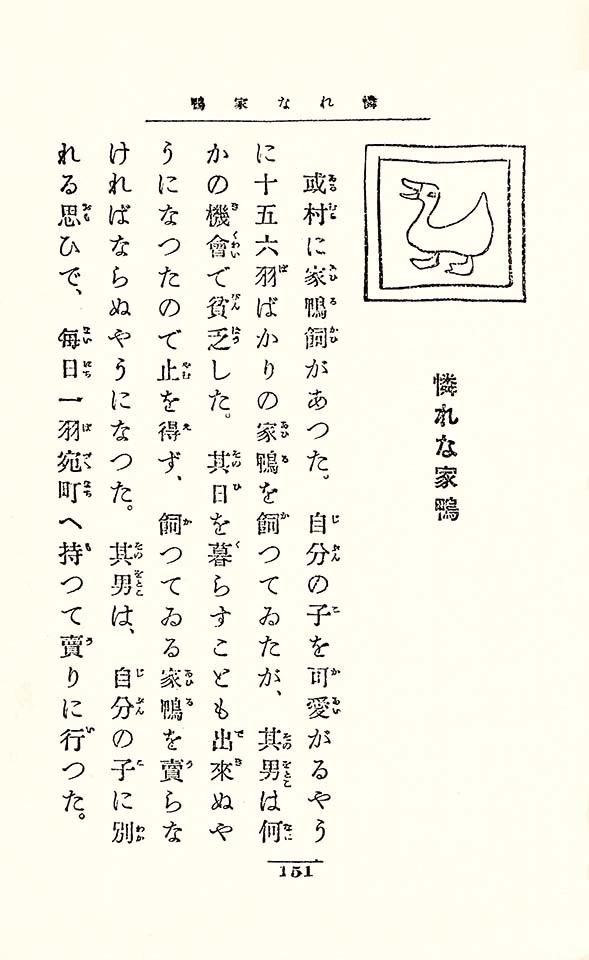 憐れな家鴨
憐れな家鴨
或村に家鴨飼があつた。自分の子を可愛がるやう
に十五六羽ばかりの家鴨を飼つてゐたが、其男は何
かの機會で貧乏した。其日を暮らすことも出來ぬや
うになつたので止を得ず、飼つてゐる家鴨を賣らな
ければならぬやうになつた。其男は、自分の子に別
れる思ひで、每日一羽宛町へ持つて賣りに行つた。
151